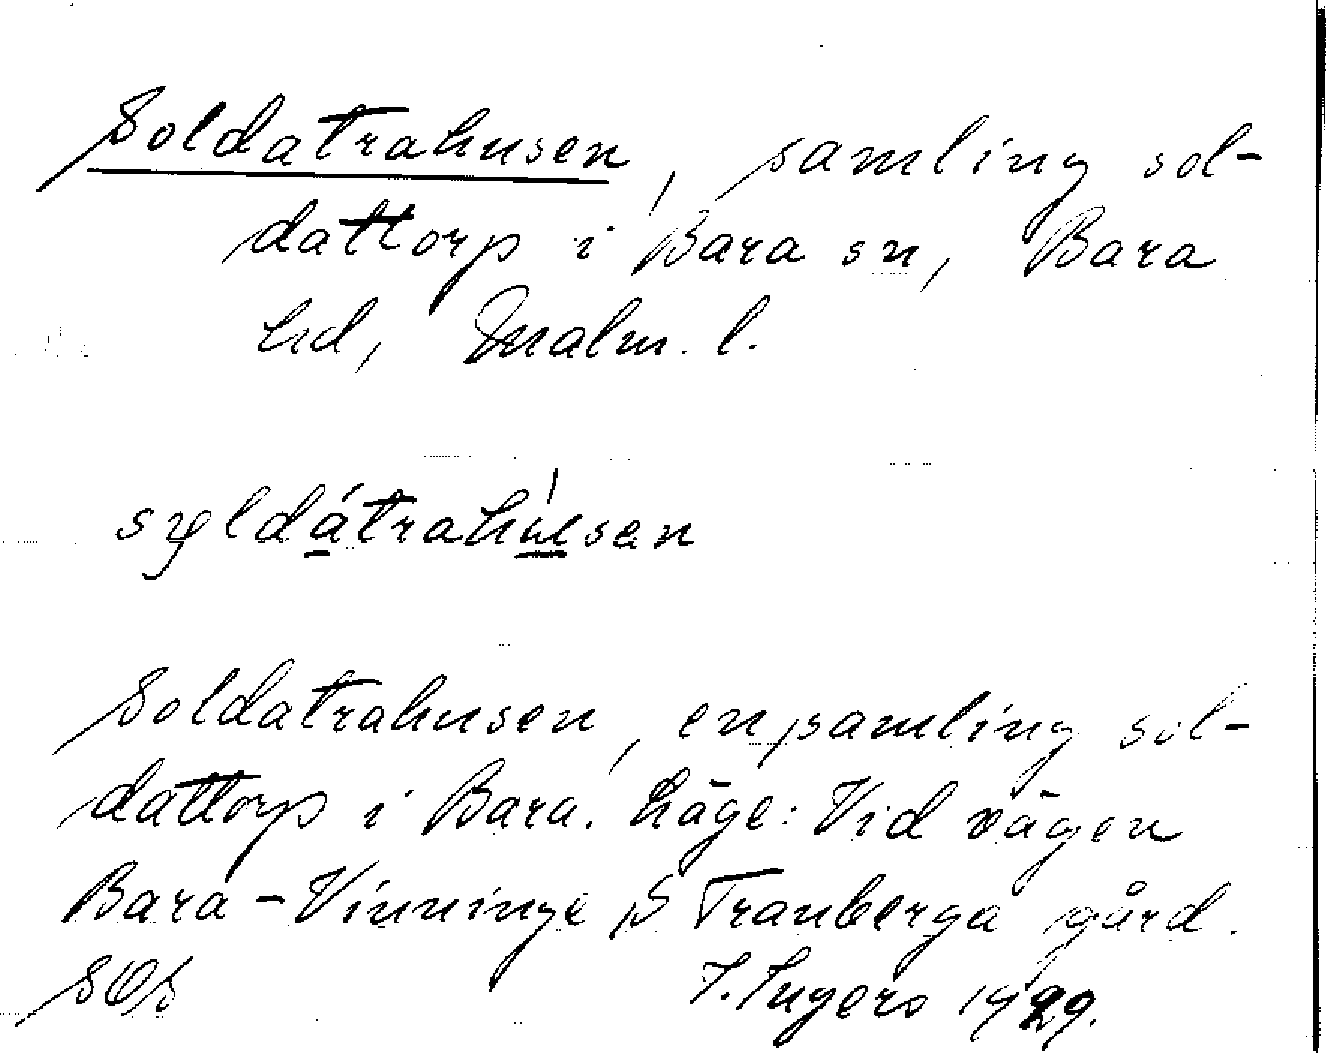 Soldatrahusen, samling sol-
dattorp i Bara sn, Bara
hd, Malm. l.
Soldatrahusen, en samling sol-
dattorp i Bara. Läge: Vid vägen
Bara-Vinninge, S Tranberga gård.
SOS I. Ingers 1929.